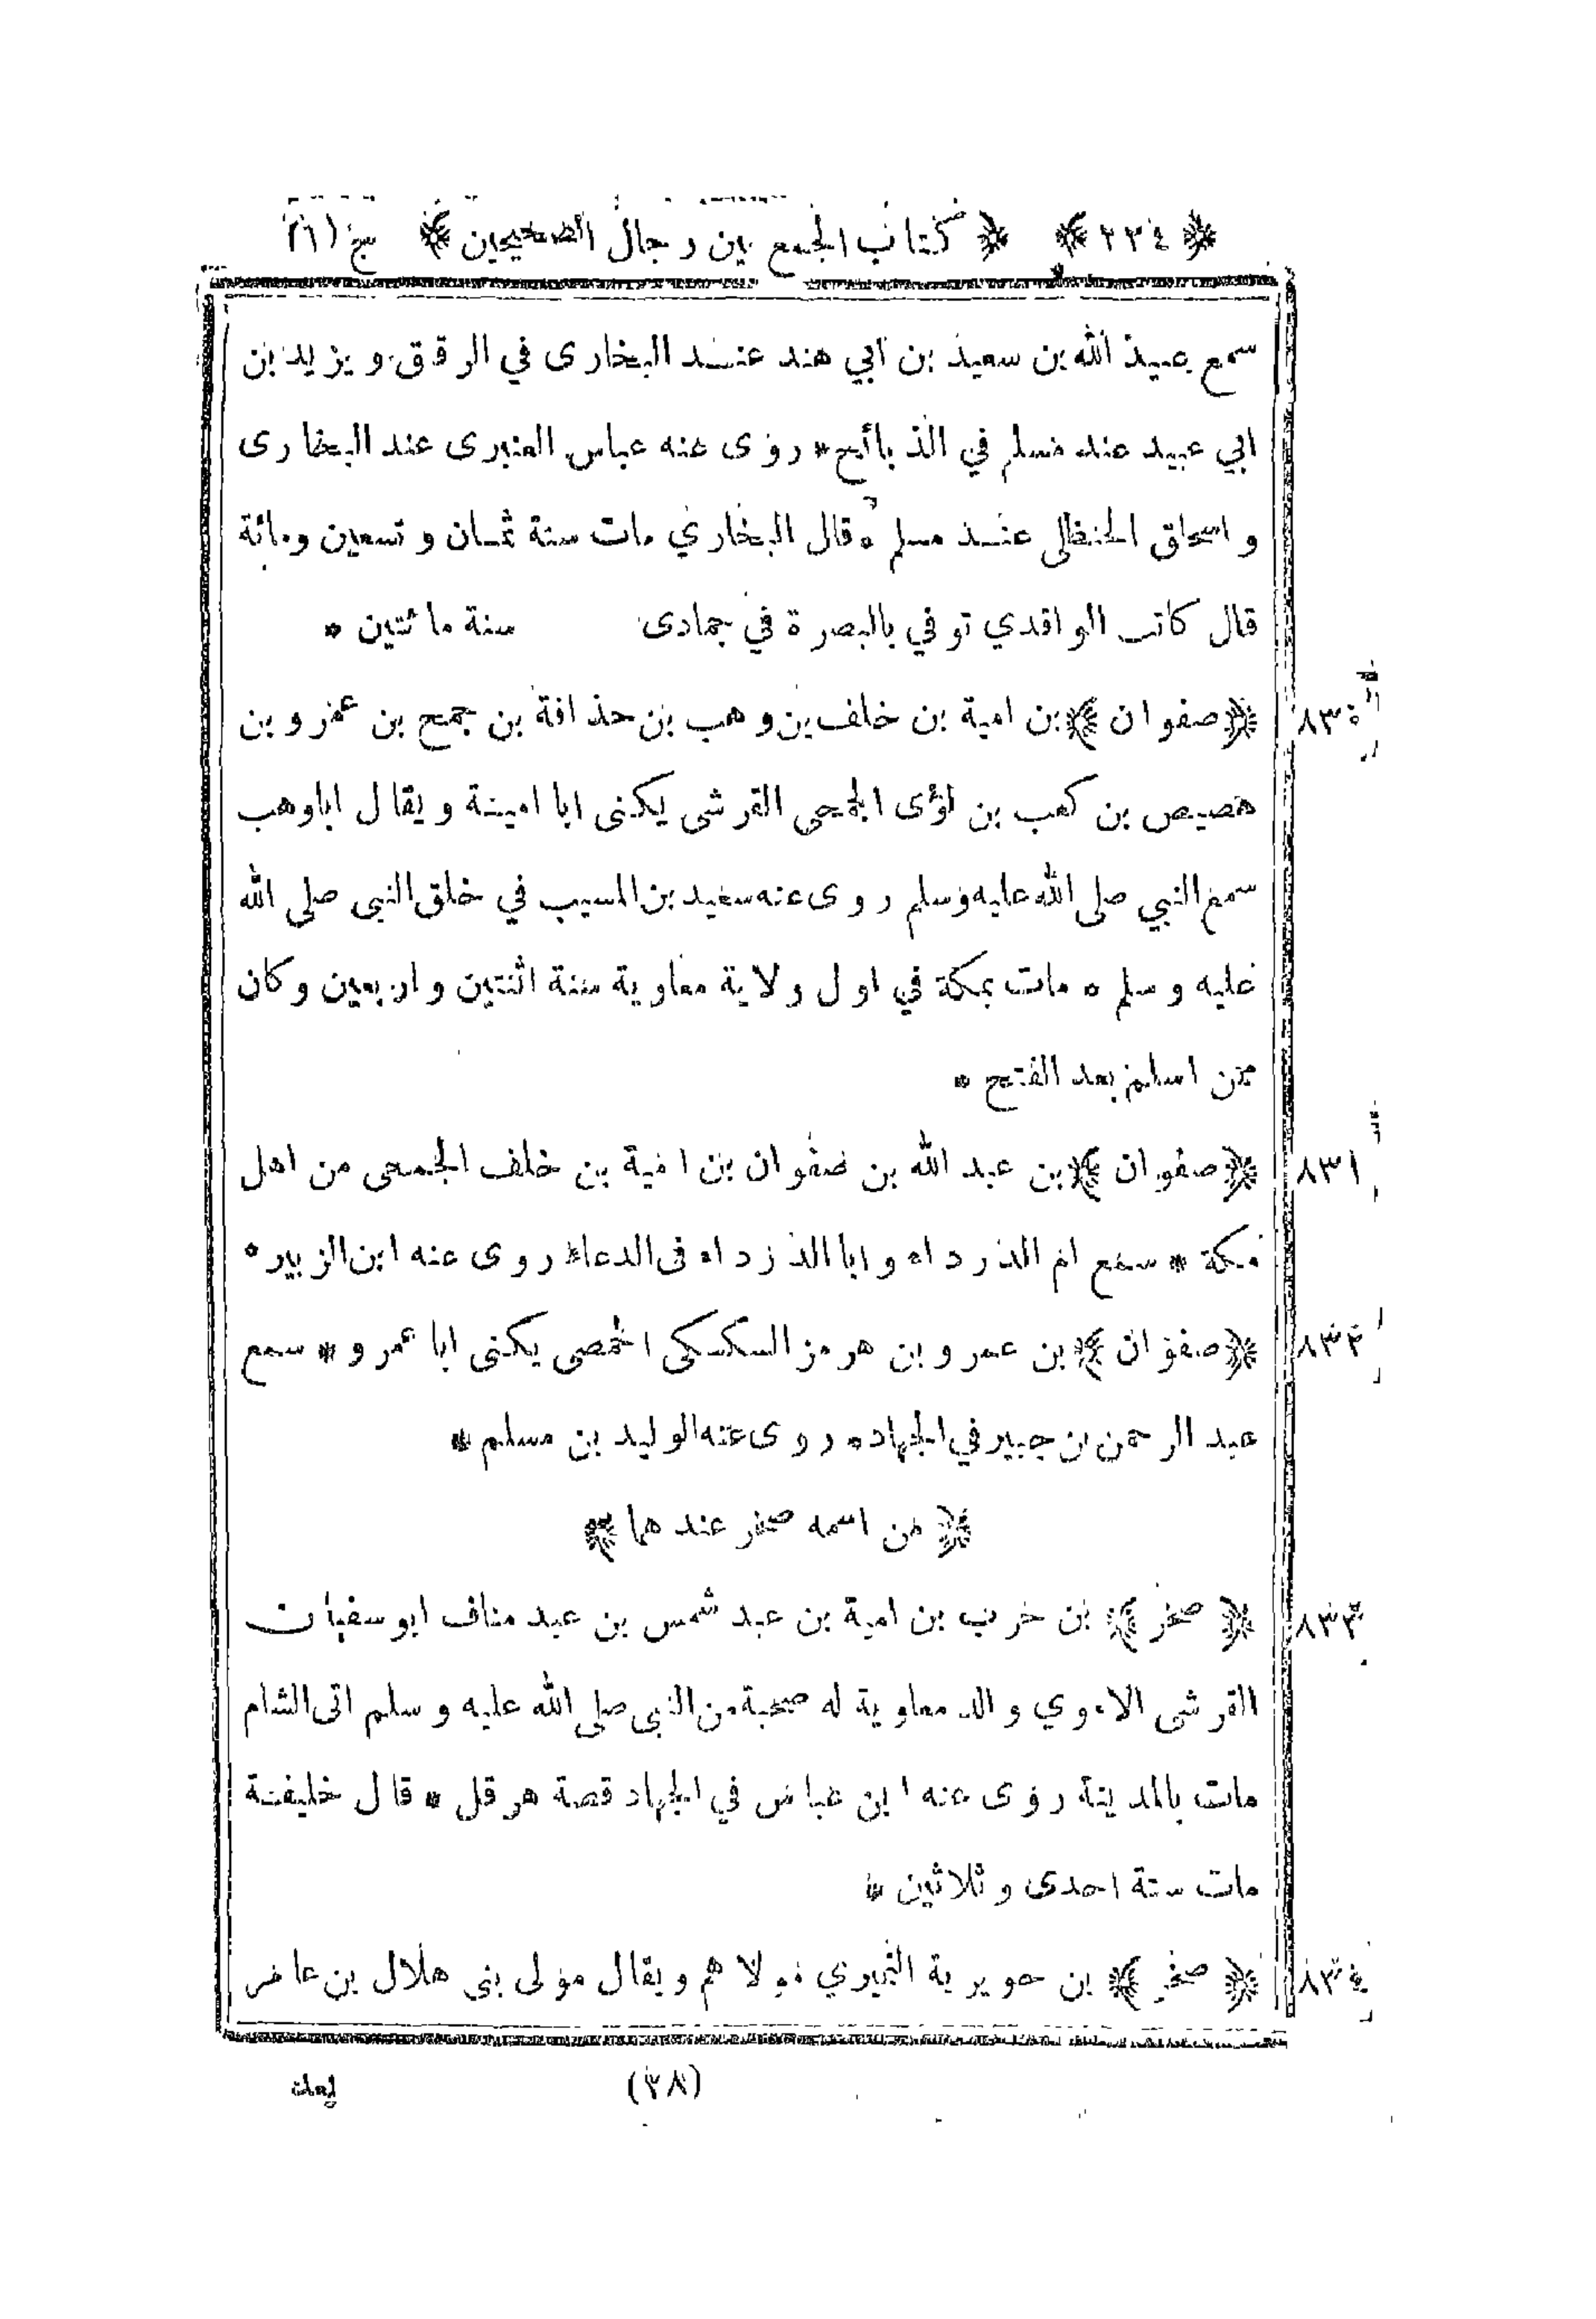 ﴿ ٢٢٤ ﴾ ﴿ كتاب الجمع بين رجال الصحيحين ﴾ ج (١)
سمع عبيد الله بن سعيد بن ابي هند عند البخارى في الرقاق ويزيد بن
ابي عبيد عند مسلم في الذبائح * روى عنه عباس العنبرى عند البخارى
و اسحاق الحنظلى عند مسلم * قال البخاري مات سنة ثمان و تسعين ومائة
قال كاتب الواقدي توفي بالبصرة في جمادى سنة مائتين *
٨٣٠ ﴿ صفوان ﴾ بن امية بن خلف بن وهب بن حذافة بن جمح بن عمرو بن
هصيص بن كعب بن لؤى الجمحى القرشى يكنى ابا امية و يقال ابا وهب
سمع النبي صلى الله عليه وسلم روى عنه سعيد بن المسيب في خلق النبى صلى الله
عليه وسلم * مات بمكة في اول ولاية معاوية سنة اثنتين واربعين وكان
ممن اسلم بعد الفتح *
٨٣١ ﴿ صفوان ﴾ بن عبد الله بن صفوان بن امية بن خلف الجمحى من اهل
مكة * سمع ام الدرداء و ابا الدرداء فى الدعاء روى عنه ابن الزبير *
٨٣٢ ﴿ صفوان ﴾ بن عمرو بن هرمز السكسكى الحمصى يكنى ابا عمرو * سمع
عبد الرحمن بن جبير في الجهاد * روى عنه الوليد بن مسلم *
﴿ من اسمه صخر عندهما ﴾
٨٣٣ ﴿ صخر ﴾ بن حرب بن امية بن عبد شمس بن عبد مناف ابو سفيان
القرشى الاموي والد معاوية له صحبة من النبى صلى الله عليه وسلم اتى الشام
مات بالمدينة روى عنه ابن عباس في الجهاد قصة هرقل * قال خليفة
مات سنة احدى و ثلاثين *
٨٣٤ ﴿ صخر ﴾ بن جويرية النميري مولاهم ويقال مولى بنى هلال بن عامر
(٢٨)